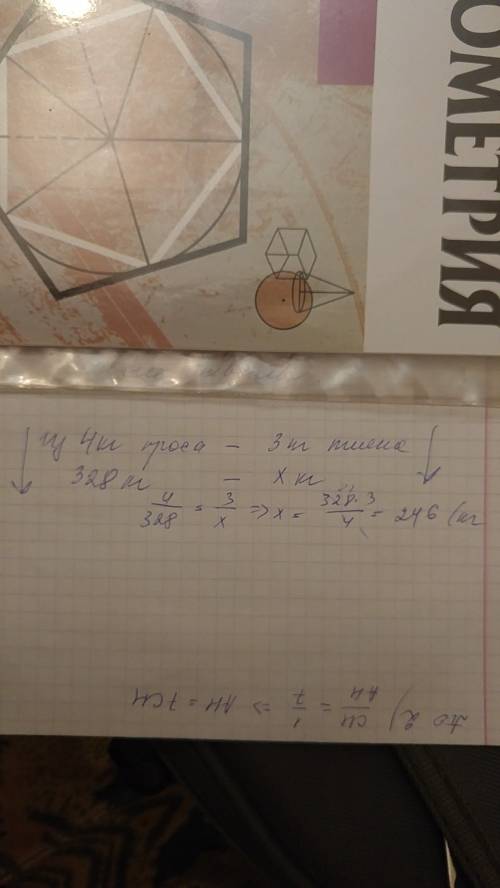 ОМЕТРИЯ
из 4кг проса – 3кг пшена
328 кг – x кг
4/328 = 3/x => x = 328·3/4 = 246 (кг
то 2) CH/AH = 1/7 => AH = 7CH